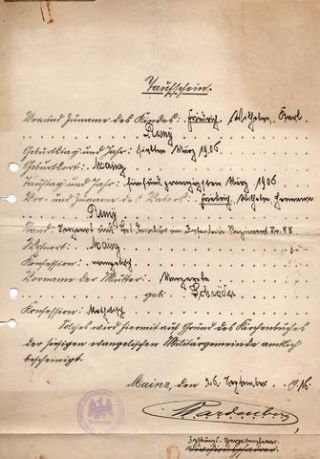 Taufschein.
Vor und Zuname des Kindes: Friedrich Wilhelm, Karl
Remÿ
Geburtstag und Jahr: März 1906
Geburtsort: Mainz
Tauftag und Jahr: fünfundzwanzigsten März 1906
Vor- und Zuname des Vaters: Friedrich Wilhelm Hermann
Remÿ
Stand: Sergeant und im Infanterie Regiment Nr. 88
Wohnort: Mainz
Konfession: evangelisch
Vorname der Mutter: Margareta
geb: Schröder
Konfession:
Solches wird hiermit auf Grund des Kirchenbuches
der hiesigen evangelischen Militärgemeinde amtlich
bescheinigt.
Mainz, den 26. September 1916